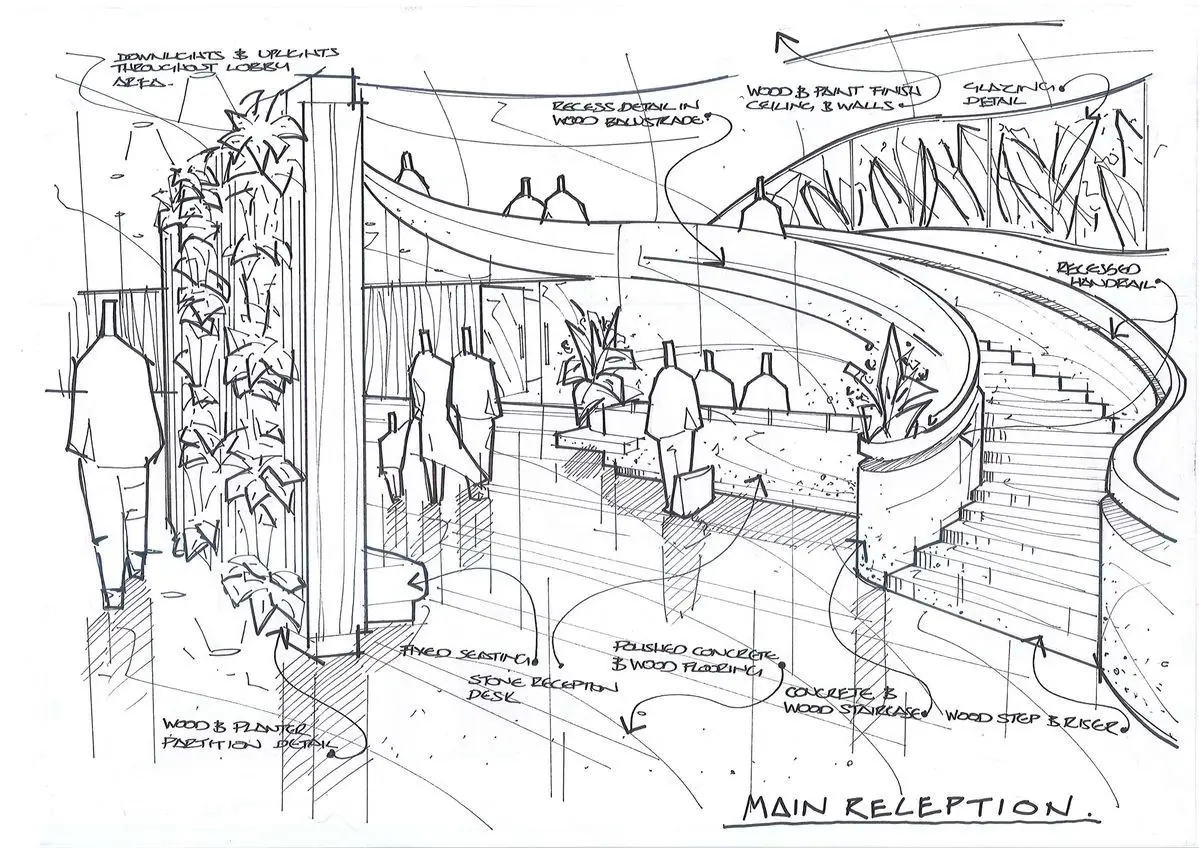 DOWNLIGHTS & UPLIGHTS
THROUGHOUT LOBBY
AREA.
RECESS DETAIL IN
WOOD BALUSTRADE
WOOD & PAINT FINISH
CEILING & WALLS
GLAZING
DETAIL
RECESSED
HANDRAIL
FIXED SEATING
STONE RECEPTION
DESK
POLISHED CONCRETE
& WOOD FLOORING
CONCRETE &
WOOD STAIRCASE
WOOD STEP & RISER
WOOD & PLANTER
PARTITION DETAIL
MAIN RECEPTION.